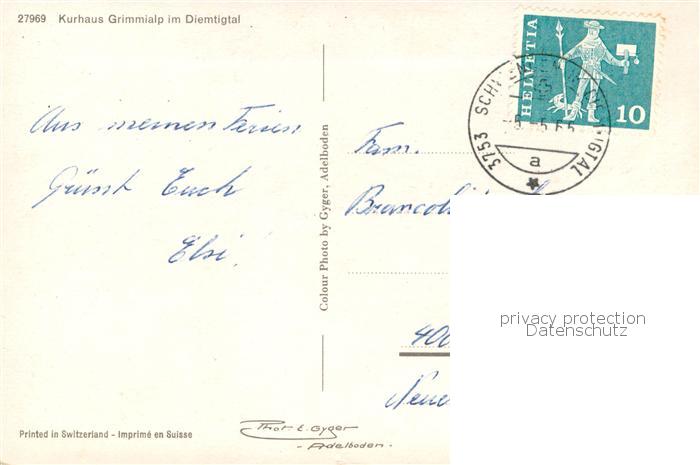 27969 Kurhaus Grimmialp im Diemtigtal
HELVETIA
10
3753 SCHW TIGTAL
a
Aus meinen Ferien
Grüsst Euch
Elsi!
Fam.
Colour Photo by Gyger, Adelboden
privacy protection
Datenschutz
Printed in Switzerland - Imprimé en Suisse
Phot. E. Gyger
- Adelboden -